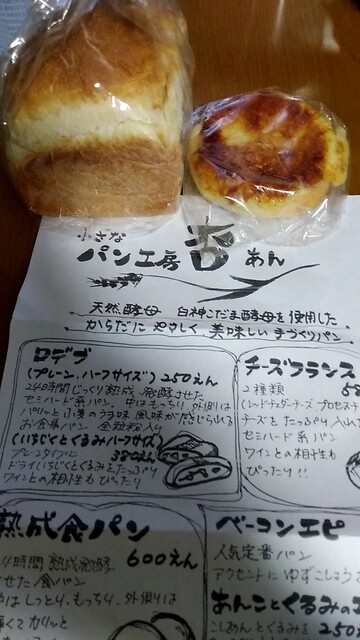 小さな
パン工房 杏 あん
天然酵母 白神こだま酵母を使用した
からだに やさしく 美味しい 手づくりパン
ロデブ
(プレーン、ハーフサイズ) 250えん
24時間じっくり熟成、発酵させた
セミハード系パン 中はもっちり 外側は
パリッと小麦のうま味 風味が感じられる
お食事パン 全粒粉入り
(いちじくとくるみハーフサイズ)
380えん
プレーンタイプに
ドライいちじくとくるみをたっぷり
ワインとの相性も ぴったり
チーズフランス
2種類
(レッドチェダーチーズ、プロセスチ
チーズを たっぷり入れ
セミハード系 パン
ワインとの相性も
ぴったり!!
熟成食パン
4時間 熟成発酵 600えん
させた 食パン
中は しっとり、もっちり、外側は
薄くて カリッと
ベーコンエピ
人気定番パン
アクセントに ゆずこしょう
あんことくるみの
こしあんとくるみを